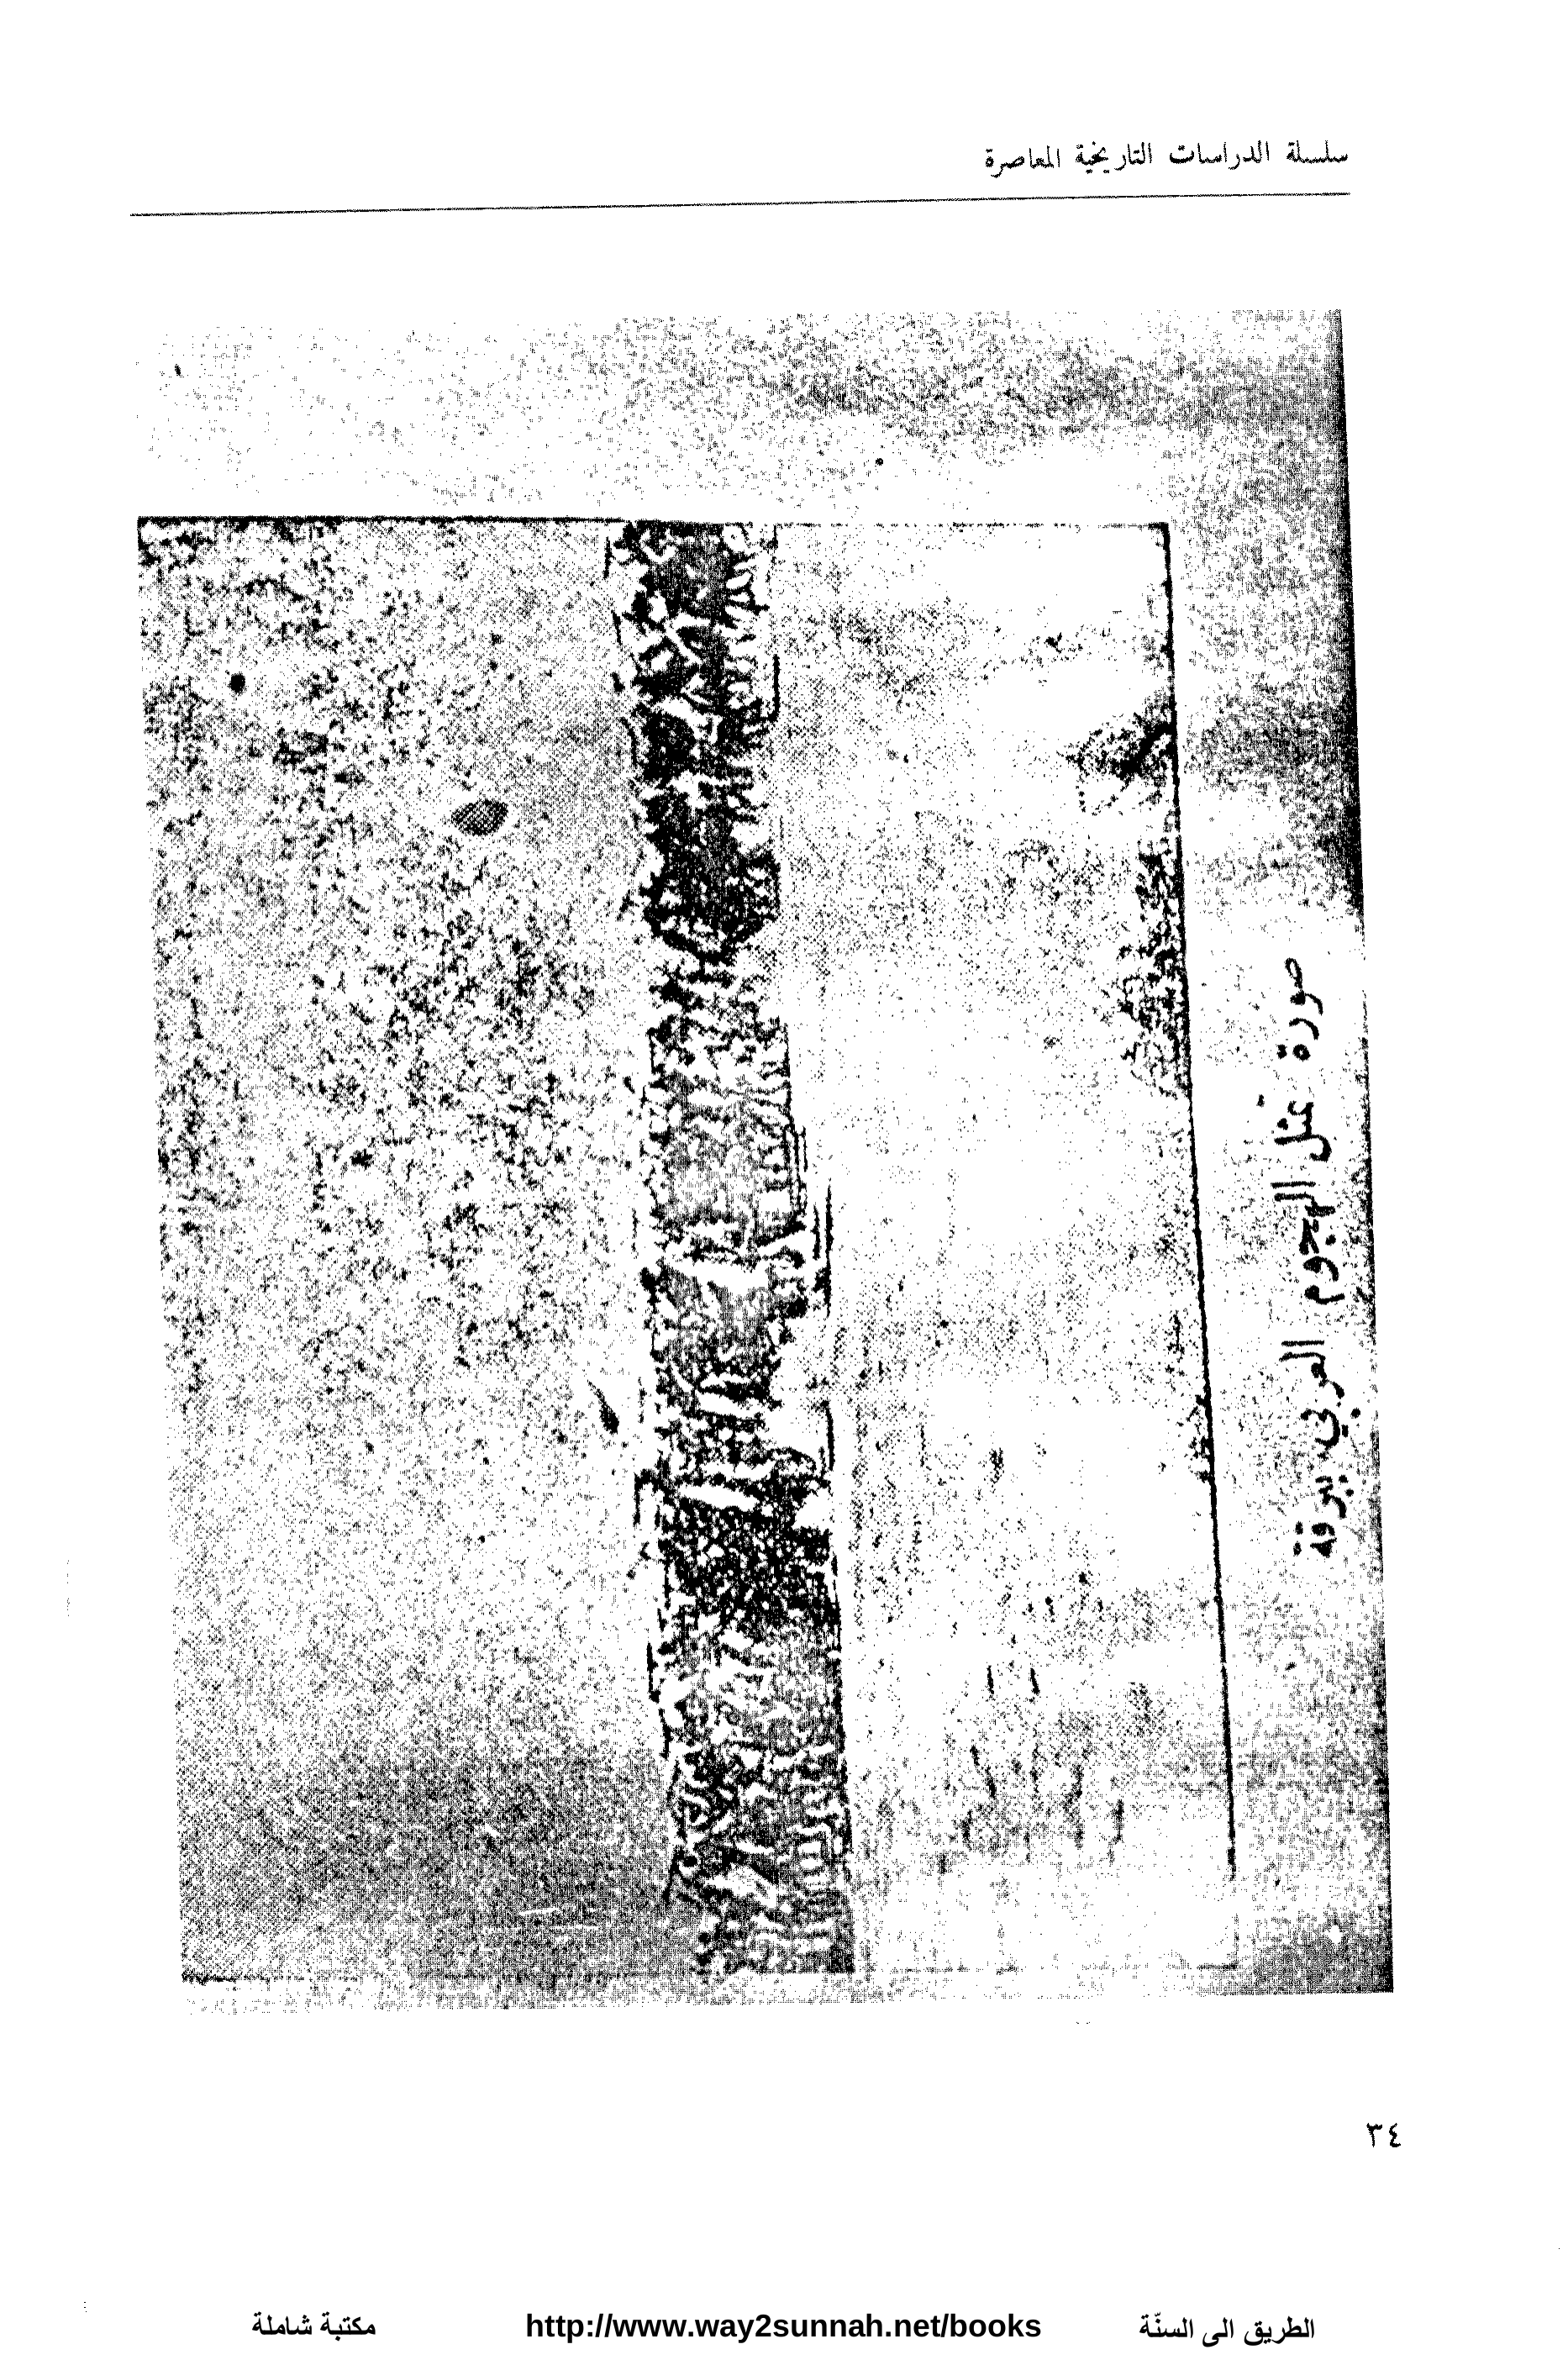 سلسلة الدراسات التاريخية المعاصرة
صورة تمثل الهجوم العربي ببرقة
٣٤
الطريق الى السنّة http://www.way2sunnah.net/books مكتبة شاملة